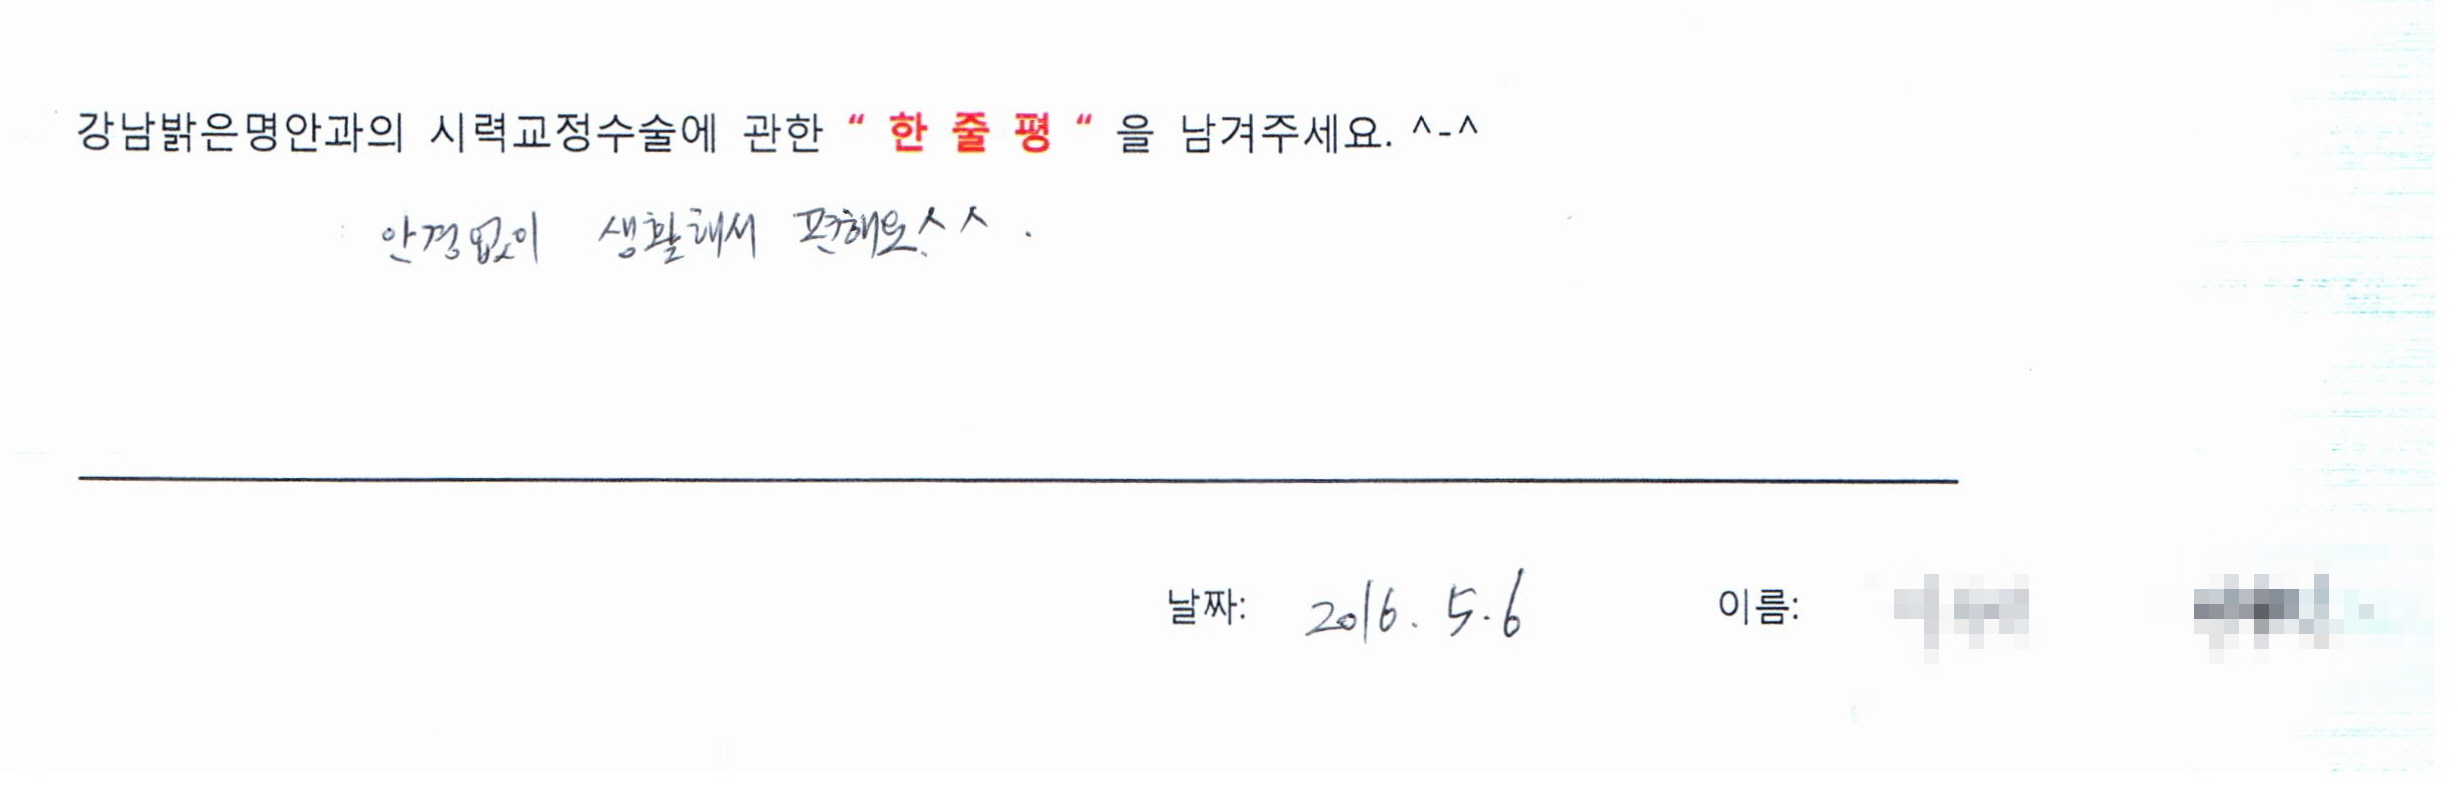 강남밝은명안과의 시력교정수술에 관한 “ 한 줄 평 “ 을 남겨주세요. ^-^
안경없이 생활해서 편해요^^.
날짜: 2016. 5. 6 이름: